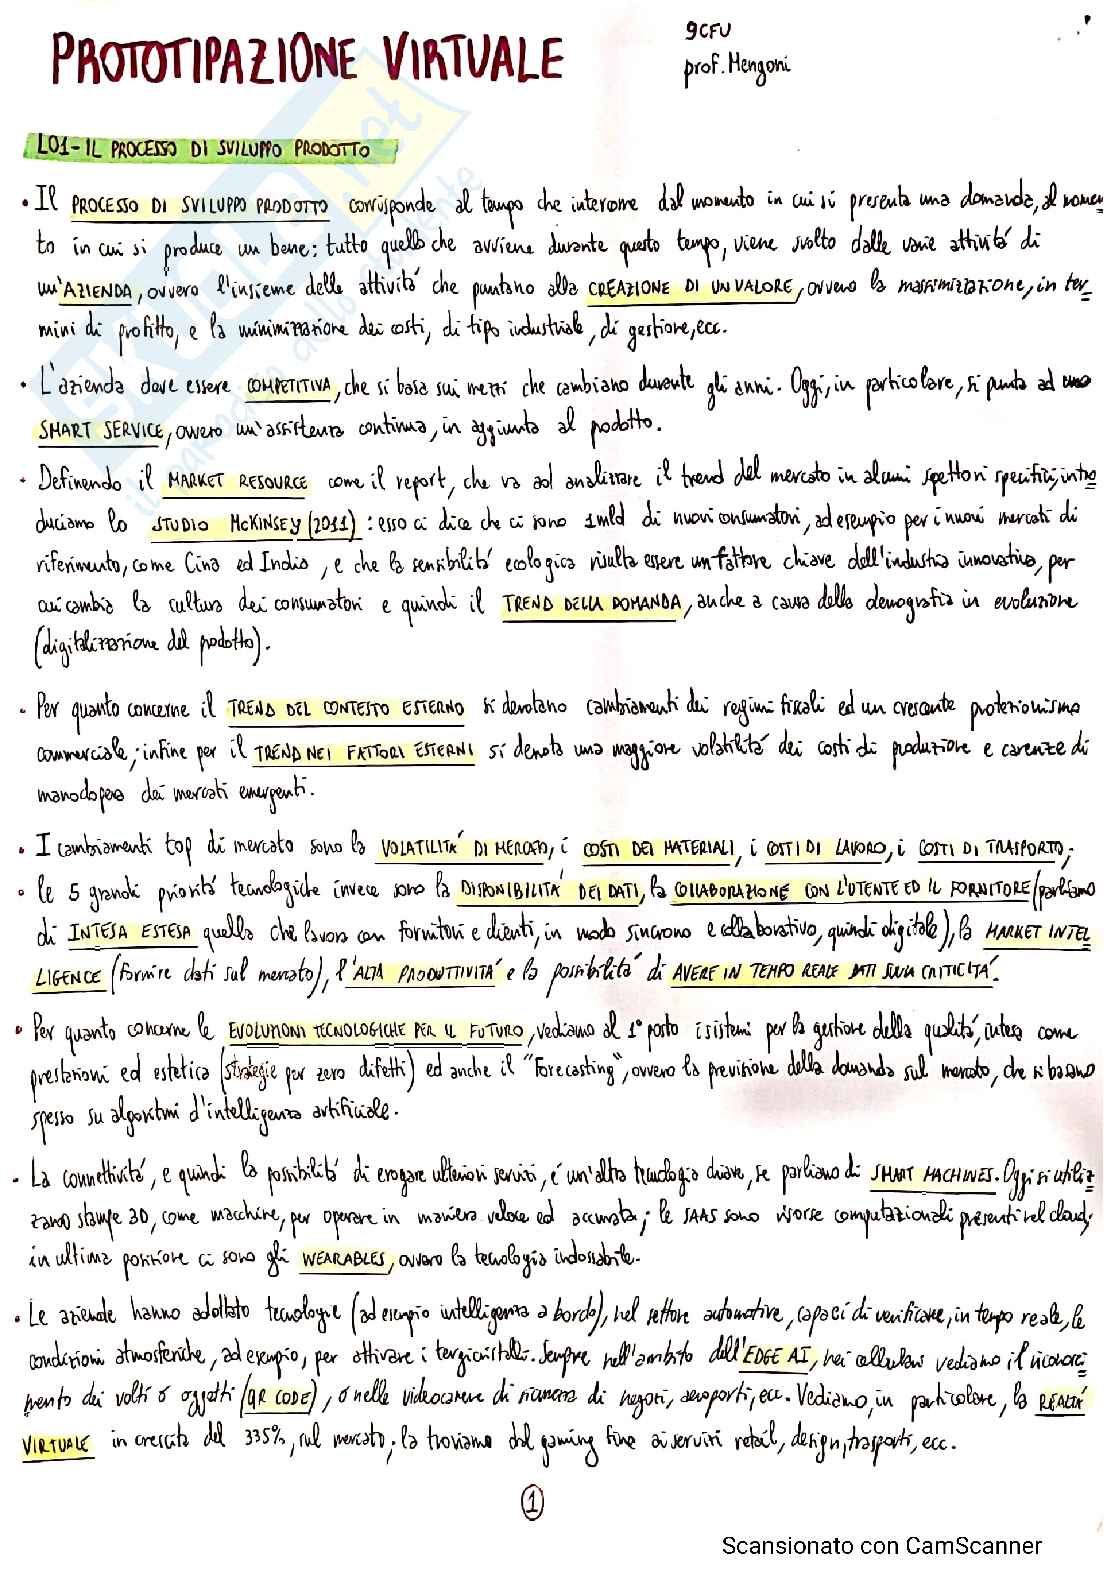 PROTOTIPAZIONE VIRTUALE
9CFU
prof. Mengoni
L01- IL PROCESSO DI SVILUPPO PRODOTTO
• Il PROCESSO DI SVILUPPO PRODOTTO corrisponde al tempo che intercorre dal momento in cui si presenta una domanda, al momen
to in cui si produce un bene: tutto quello che avviene durante questo tempo, viene svolto dalle varie attività di
un'AZIENDA, ovvero l'insieme delle attività che puntano alla CREAZIONE DI UN VALORE, ovvero la massimizzazione, in ter_
mini di profitto, e la minimizzazione dei costi, di tipo industriale, di gestione, ecc.
• L'azienda deve essere COMPETITIVA, che si basa sui mezzi che cambiano durante gli anni. Oggi, in particolare, si punta ad uno
SMART SERVICE, ovvero un'assistenza continua, in aggiunta al prodotto.
• Definendo il MARKET RESOURCE come il report, che va ad analizzare il trend del mercato in alcuni spettori specifici, intro
duciamo lo STUDIO McKINSEY (2011) : esso ci dice che ci sono 1mld di nuovi consumatori, ad esempio per i nuovi mercati di
riferimento, come Cina ed India, e che la sensibilità ecologica risulta essere un fattore chiave dell'industria innovativa, per
cui cambia la cultura dei consumatori e quindi il TREND DELLA DOMANDA, anche a causa della demografia in evoluzione
(digitalizzazione del prodotto).
• Per quanto concerne il TREND DEL CONTESTO ESTERNO si denotano cambiamenti dei regimi fiscali ed un crescente protezionismo
commerciale; infine per il TREND NEI FATTORI ESTERNI si denota una maggiore volatilità dei costi di produzione e carenze di
manodopera dei mercati emergenti.
• I cambiamenti top di mercato sono la VOLATILITÀ DI MERCATO, i COSTI DEI MATERIALI, i COSTI DI LAVORO, i COSTI DI TRASPORTO;
• le 5 grandi priorità tecnologiche invece sono la DISPONIBILITÀ DEI DATI, la COLLABORAZIONE CON L'UTENTE ED IL FORNITORE (parliamo
di INTESA ESTESA quella che lavora con fornitori e clienti, in modo sincrono e collaborativo, quindi digitale), la MARKET INTEL
LIGENCE (fornire dati sul mercato), l'ALTA PRODUTTIVITÀ e la possibilità di AVERE IN TEMPO REALE DATI SULLA CRITICITÀ.
• Per quanto concerne le EVOLUZIONI TECNOLOGICHE PER IL FUTURO, vediamo al 1° posto i sistemi per la gestione della qualità, intesa come
prestazioni ed estetica (strategie per zero difetti) ed anche il "Forecasting", ovvero la previsione della domanda sul mercato, che si basano
spesso su algoritmi d'intelligenza artificiale.
• La connettività, e quindi la possibilità di erogare ulteriori servizi, é un'altra tecnologia chiave, se parliamo di SMART MACHINES. Oggi si utiliz
zano stampe 3D, come macchine, per operare in maniera veloce ed accurata; le SAAS sono risorse computazionali presenti nel cloud;
in ultima posizione ci sono gli WEARABLES, ovvero la tecnologia indossabile.
• Le aziende hanno adottato tecnologie (ad esempio intelligenza a bordo), nel settore automotive, capaci di verificare, in tempo reale, le
condizioni atmosferiche, ad esempio, per attivare i tergicristalli. Sempre nell'ambito dell'EDGE AI, nei cellulari vediamo il riconosci
mento dei volti o oggetti (QR CODE), o nelle videocamere di sicurezza di negozi, aeroporti, ecc. Vediamo, in particolare, la REALTÀ
VIRTUALE in crescita del 335%, sul mercato; la troviamo dal gaming fino ai servizi retail, design, trasporti, ecc.
1
Scansionato con CamScanner
SKUOLA.net